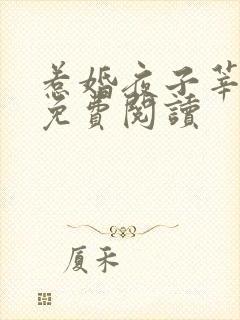 惹婚夜子莘
免費閱讀
厦禾